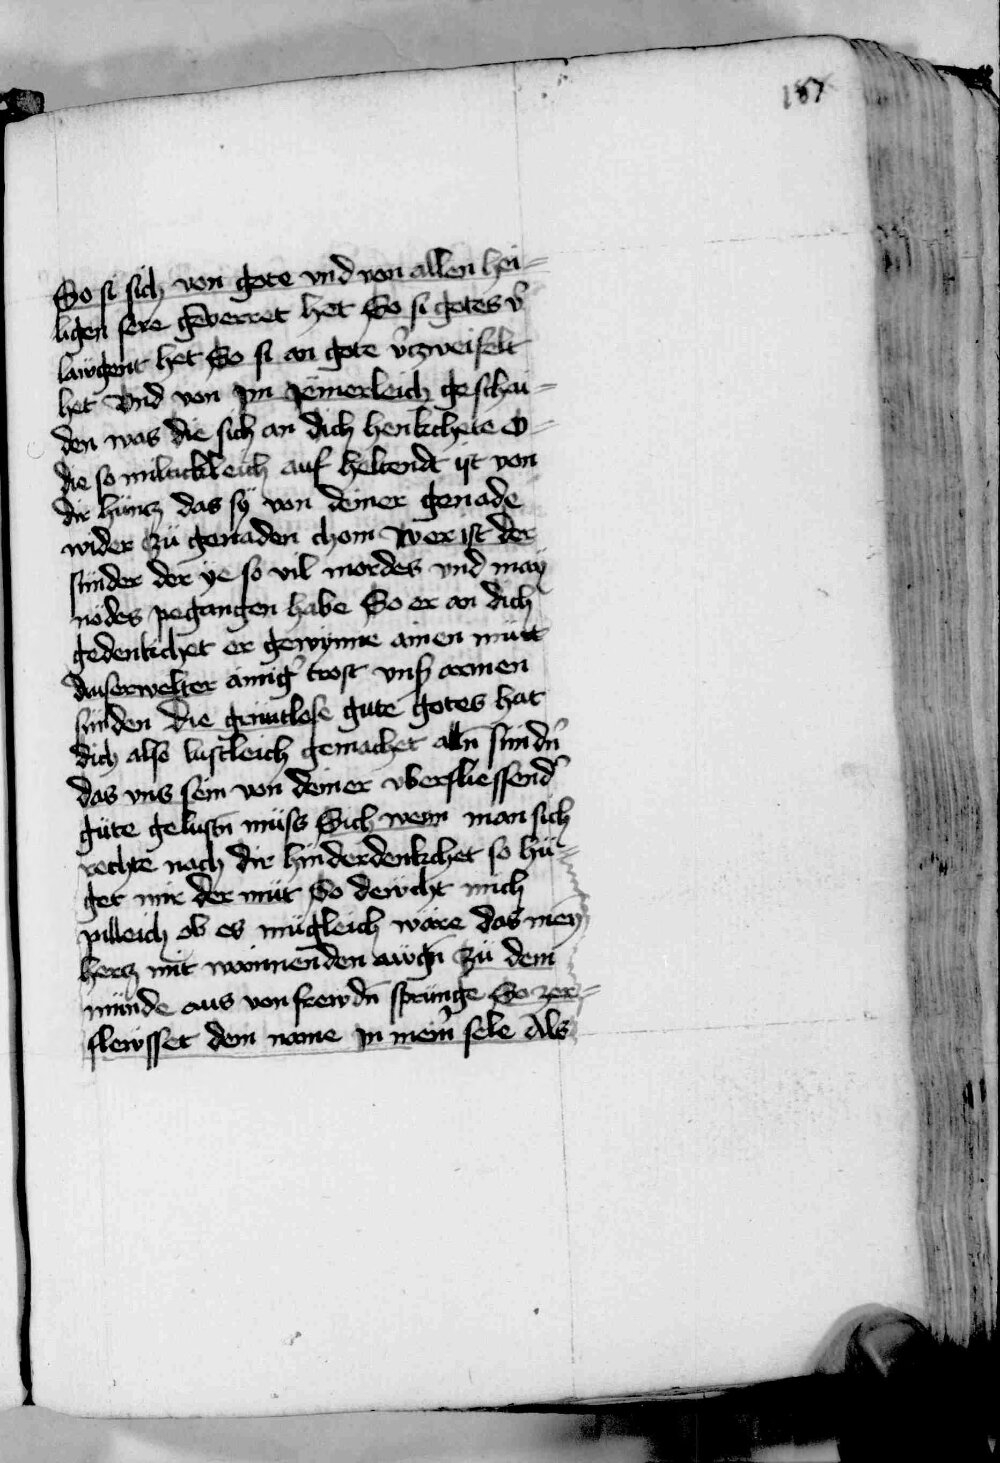 187
So si sich von gote vnd von allen hei=
ligen sere geverret het So si gotes v̓
lawgent het So si an gote v̓czweifelt
het Vnd von ym yemerleich geschai=
den was die sich an dich henkchete O=
die so miltickleich auf heltendt ist von
dir huncz das sÿ von deiner genade
wider zü genaden chom Wer ist der
sünder der ye so vil mordes vnd maÿ
nödes pegangen habe So er an dich
gedenkchet er gewynne ainen müt
Auserwelter ainig̓ trost vnß armen
sünden Die gruntlose güte gotes hat
dich also lustleich gemachet alln̄ sünd̓n
das vns sein von deiner vberfliessend̓
güte gelustn̄ müss Sich wenn man sich
rechte nach dir hinderdenkchet so hü=
get mir der müt So dewcht mich
pilleich ob es mügleich wäre das mein
hercz mit wainnenden awgn̄ zü dem
münde aus von frewdn̄ sprünge So zer=
flewsset dein name in mein̓ sele Als